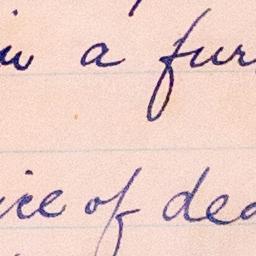 a fur
ice of dea